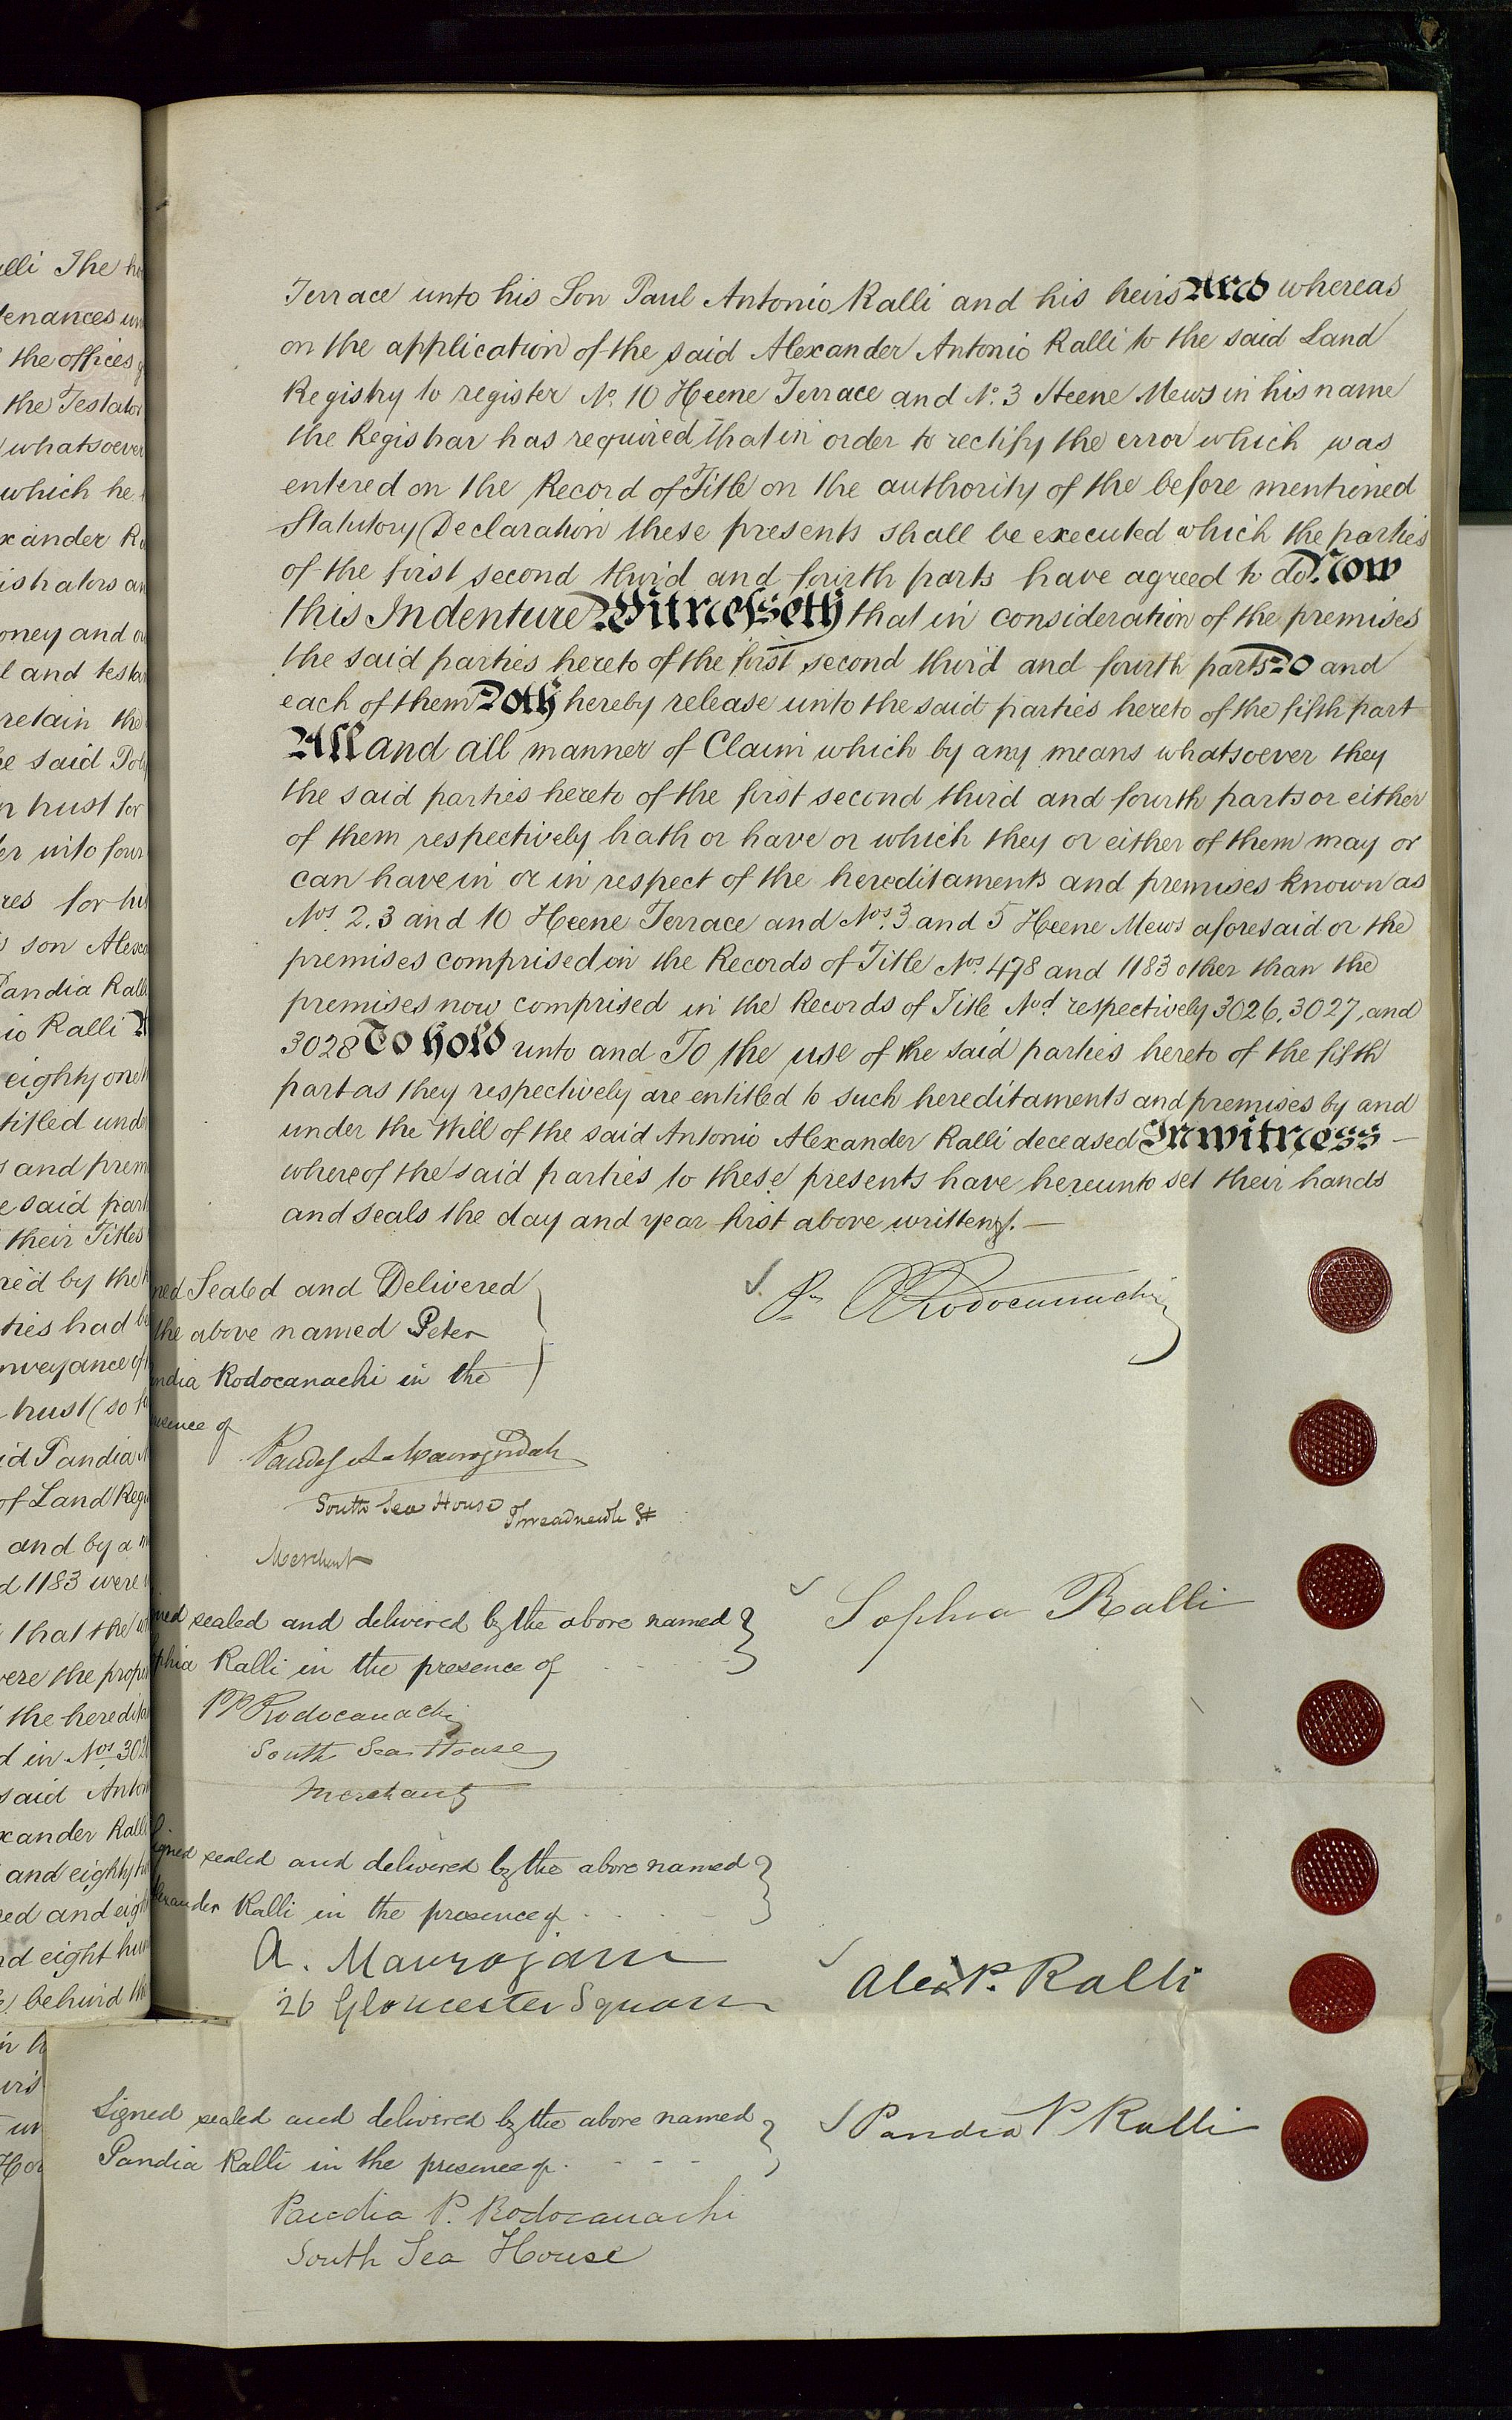 Terrace unto his Son Paul Antonio Ralli and his heirs And whereas
on the application of the said Alexander Antonio Ralli to the said Land
Registry to register No. 10 Heene Terrace and No. 3 Heene Mews in his name
the Registrar has required that in order to rectify the error which was
entered on the Record of Title on the authority of the before mentioned
Statutory Declaration these presents shall be executed which the parties
of the first second third and fourth parts have agreed to do Now
this Indenture Witnesseth that in consideration of the premises
the said parties hereto of the first second third and fourth parts Do and
each of them Doth hereby release unto the said parties hereto of the fifth part
All and all manner of Claim which by any means whatsoever they
the said parties hereto of the first second third and fourth parts or either
of them respectively hath or have or which they or either of them may or
can have in or in respect of the hereditaments and premises known as
Nos. 2. 3 and 10 Heene Terrace and Nos. 3 and 5 Heene Mews aforesaid or the
premises comprised in the Records of Title Nos. 478 and 1183 other than the
premises now comprised in the Records of Title Nos. respectively 3026, 3027, and
3028 To hold unto and To the use of the said parties hereto of the fifth
part as they respectively are entitled to such hereditaments and premises by and
under the Will of the said Antonio Alexander Ralli deceased In witness —
whereof the said parties to these presents have hereunto set their hands
and seals the day and year first above written. —
ned Sealed and Delivered
the above named Peter
ndia Rodocanachi in the
sence of
P. P. Rodocanachi
South Sea House Threadneedle St
Merchant
ned sealed and delivered by the above named
phia Ralli in the presence of
Sophia Ralli
PP Rodocanachi
South Sea House
Merchant
Signed sealed and delivered by the above named
lexander Ralli in the presence of
A. Mavrojani
26 Gloucester Square
Alex P. Ralli
Signed sealed and delivered by the above named
Pandia Ralli in the presence of
Pandia P Ralli
Pandia P. Rodocanachi
South Sea House
lli The
tenances
the offices
the Testator
whatsoever
which he
xander
istrators
oney and
l and
retain the
e said
n trust for
er into four
res for
son
Pandia Ralli
io Ralli
eighty one
titled
s and
e said
their Titles
red by the
ties had
nveyance of
trust (so
id Pandia
of Land
and by a
d 1183 were
that the
were the
the
d in Nos.
said
xander Ralli
and
ed and
nd eight
behind